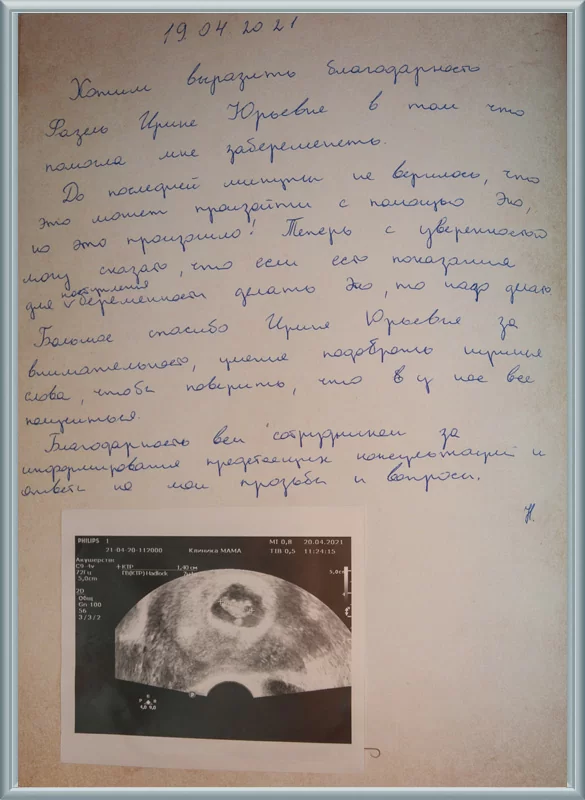 19.04.2021
Хотим выразить благодарность
Фазель Ирине Юрьевне в том что
помогла мне забеременеть.
До последней минуты не верилось, что
это может произойти с помощью Эко,
но это произошло! Теперь с уверенностью
могу сказать, что если есть показания
наступления
для беременности делать Эко, то надо делать.
Большое спасибо Ирине Юрьевне за
внимательность, умение подобрать нужные
слова, чтобы поверить, что у нас все
получиться.
Благодарность всем сотрудникам за
информирования предстоящих консультаций и
ответы на мои просьбы и вопросы.
Н.
PHILIPS
MI 0,8 20.04.2021
21-04-20-112000 Клиника МАМА TIB 0,5 11:24:15
Акушерство
C9-4v
72Гц
5,0cm
+КТР 1,40 cm
ГВ(КТР) Hadlock
2D
Общ
Gn 100
56
3/3/2
5,0